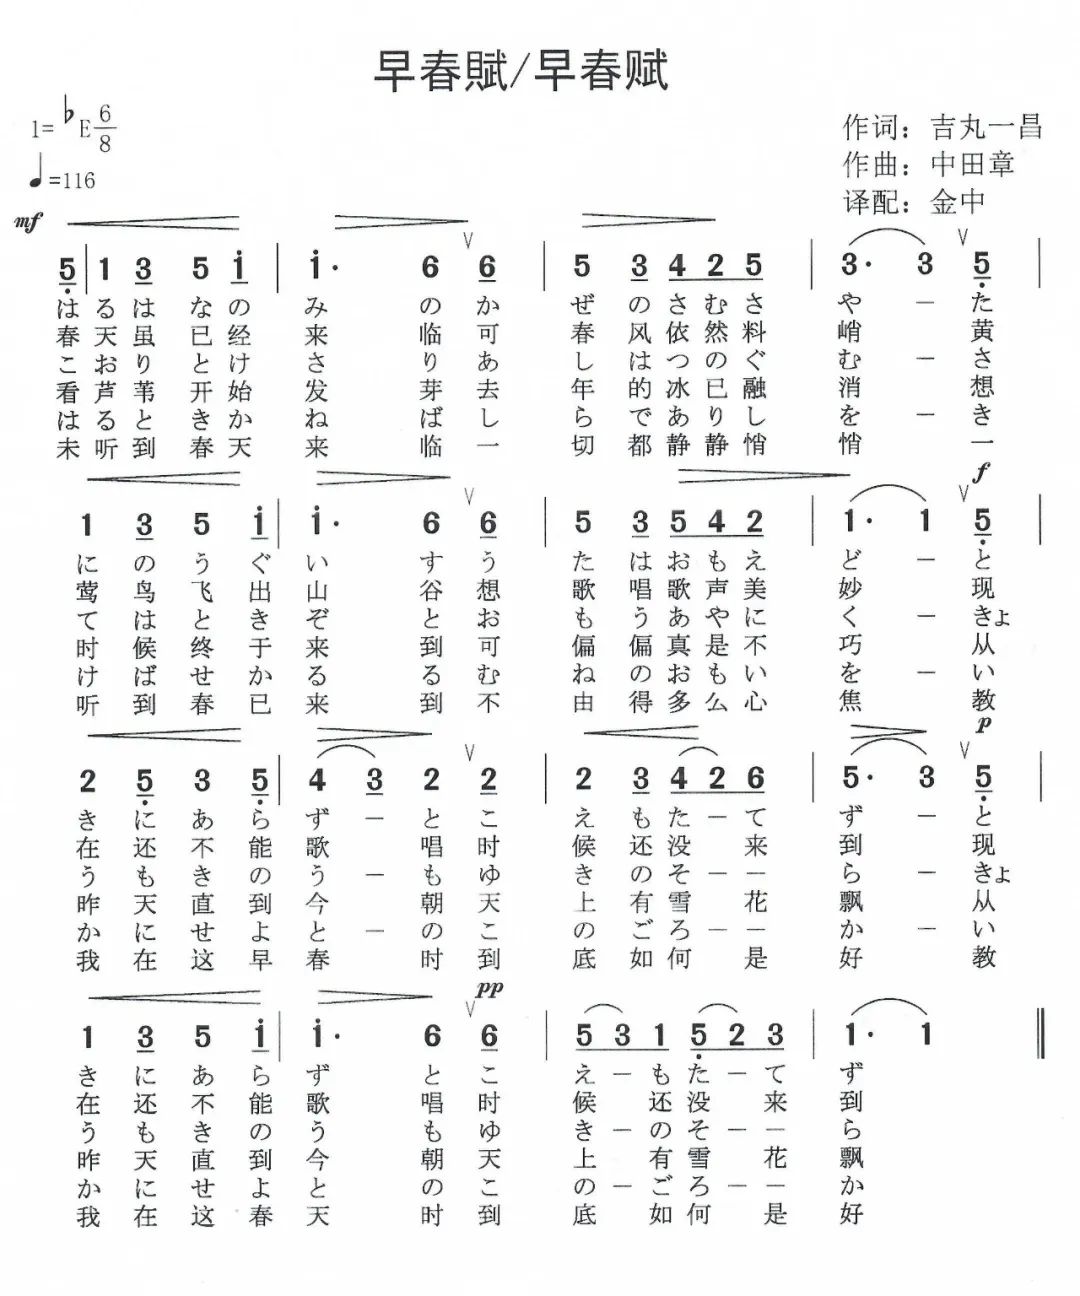 早春賦/早春赋
1=♭E 6/8
♩=116
作词：吉丸一昌
作曲：中田章
译配：金中
mf
5 | 1 3 5 i | i· 6 6 | 5 3 4 2 5 | 3· 3 5 |
は る は な の み の か ぜ の さ む さ や － た
春 天 虽 已 经 来 临 可 春 风 依 然 料 峭 － 黄
こ お り と け さ り あ し は つ の ぐ む － さ
看 芦 苇 开 始 发 芽 去 年 的 冰 已 融 消 － 想
は る と き か ね ば し ら で あ り し を － き
未 听 到 春 天 来 临 一 切 都 静 静 悄 悄 一
f
1 3 5 i | i· 6 6 | 5 3 5 4 2 | 1· 1 5
に の う ぐ い す う た は お も え ど － と
莺 鸟 飞 出 山 谷 想 歌 唱 歌 声 美 妙 － 现
て は と き ぞ と お も う あ や に く － きょ
时 候 终 于 来 到 可 偏 偏 真 是 不 巧 － 从
け ば せ か る る む ね の お も い を － い
听 到 春 已 来 到 不 由 得 多 么 心 焦 教
p
2 5 3 5 | 4 3 2 2 | 2 3 4 2 6 | 5· 3 5 |
き に あ ら ず － と こ え も た － て ず － と
在 还 不 能 歌 唱 时 候 还 没 来 到 现
う も き の う － も ゆ き の そ － － ら － きょ
昨 天 直 到 今 朝 天 上 有 雪 花 飘 从
か に せ よ と － の こ の ご ろ － － か － い
我 在 这 早 春 时 到 底 如 何 是 好 教
pp
1 3 5 i | i· 6 6 | 5 3 1 5 2 3 | 1· 1
き に あ ら ず と こ え － も た － て ず
在 还 不 能 歌 唱 时 候 还 没 来 到
う も き の う も ゆ き － の そ － － ら
昨 天 直 到 今 朝 天 上 有 雪 花 飘
か に せ よ と の こ の － ご ろ － － か
我 在 这 春 天 时 到 底 如 何 是 好